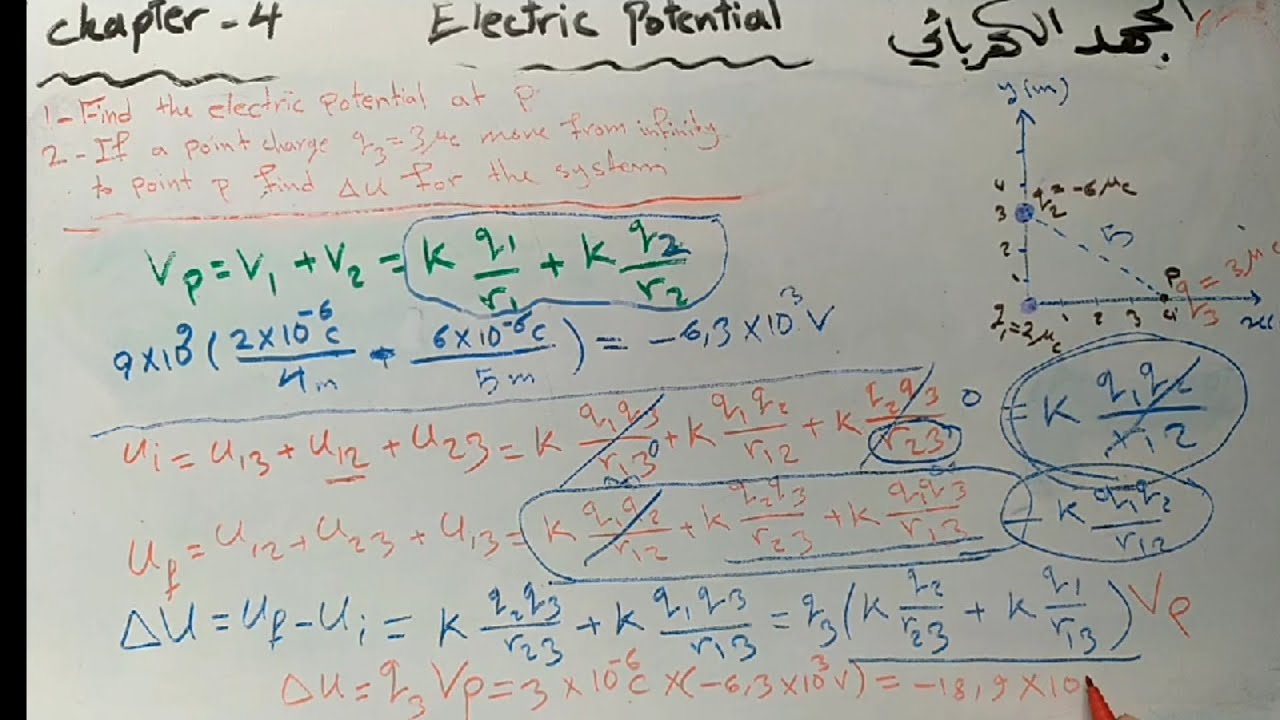 chapter - 4 Electric Potential الجهد الكهربائي
1 - Find the electric potential at P
2 - If a point charge q3 = 3 μc move from infinity
to point P find ΔU for the system
y(m)
4
3 q2 = -6 μc
2
1
5
P q3 = 3 μc
q1 = 2 μc 1 2 3 4
Vp = V1 + V2 = k q1/r1 + k q2/r2
9 × 10^9 ( 2 × 10^-6 c / 4 m - 6 × 10^-6 c / 5 m ) = -6,3 × 10^3 V
Ui = U13 + U12 + U23 = k q1q3/r13 0 + k q1q2/r12 + k q2q3/r23 0 = k q1q2/r12
Uf = U12 + U23 + U13 = k q1q2/r12 + k q2q3/r23 + k q1q3/r13 - k q1q2/r12
ΔU = Uf - Ui = k q2q3/r23 + k q1q3/r13 = q3 ( k q2/r23 + k q1/r13 ) Vp
ΔU = q3 Vp = 3 × 10^-6 c × (-6,3 × 10^3 V) = -18,9 × 10